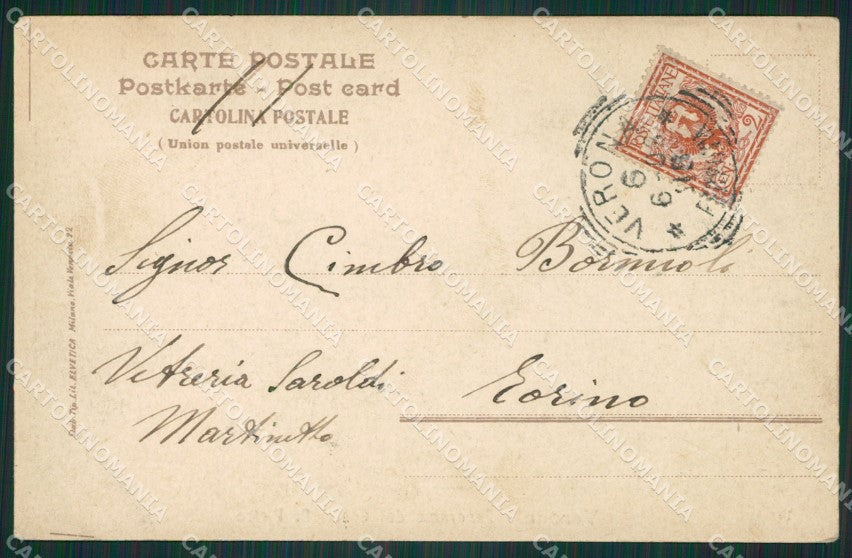 CARTE POSTALE
Postkarte - Post card
CARTOLINA POSTALE
( Union postale universelle )
Signor Cimbro Bormioli
Vetreria Saroldi Torino
Martinetto
Stab. Tip. Lit. ELVETICA Milano, Viale Venezia, 22
VERONA
POSTE ITALIANE
2
CENT
CARTOLINOMANIA